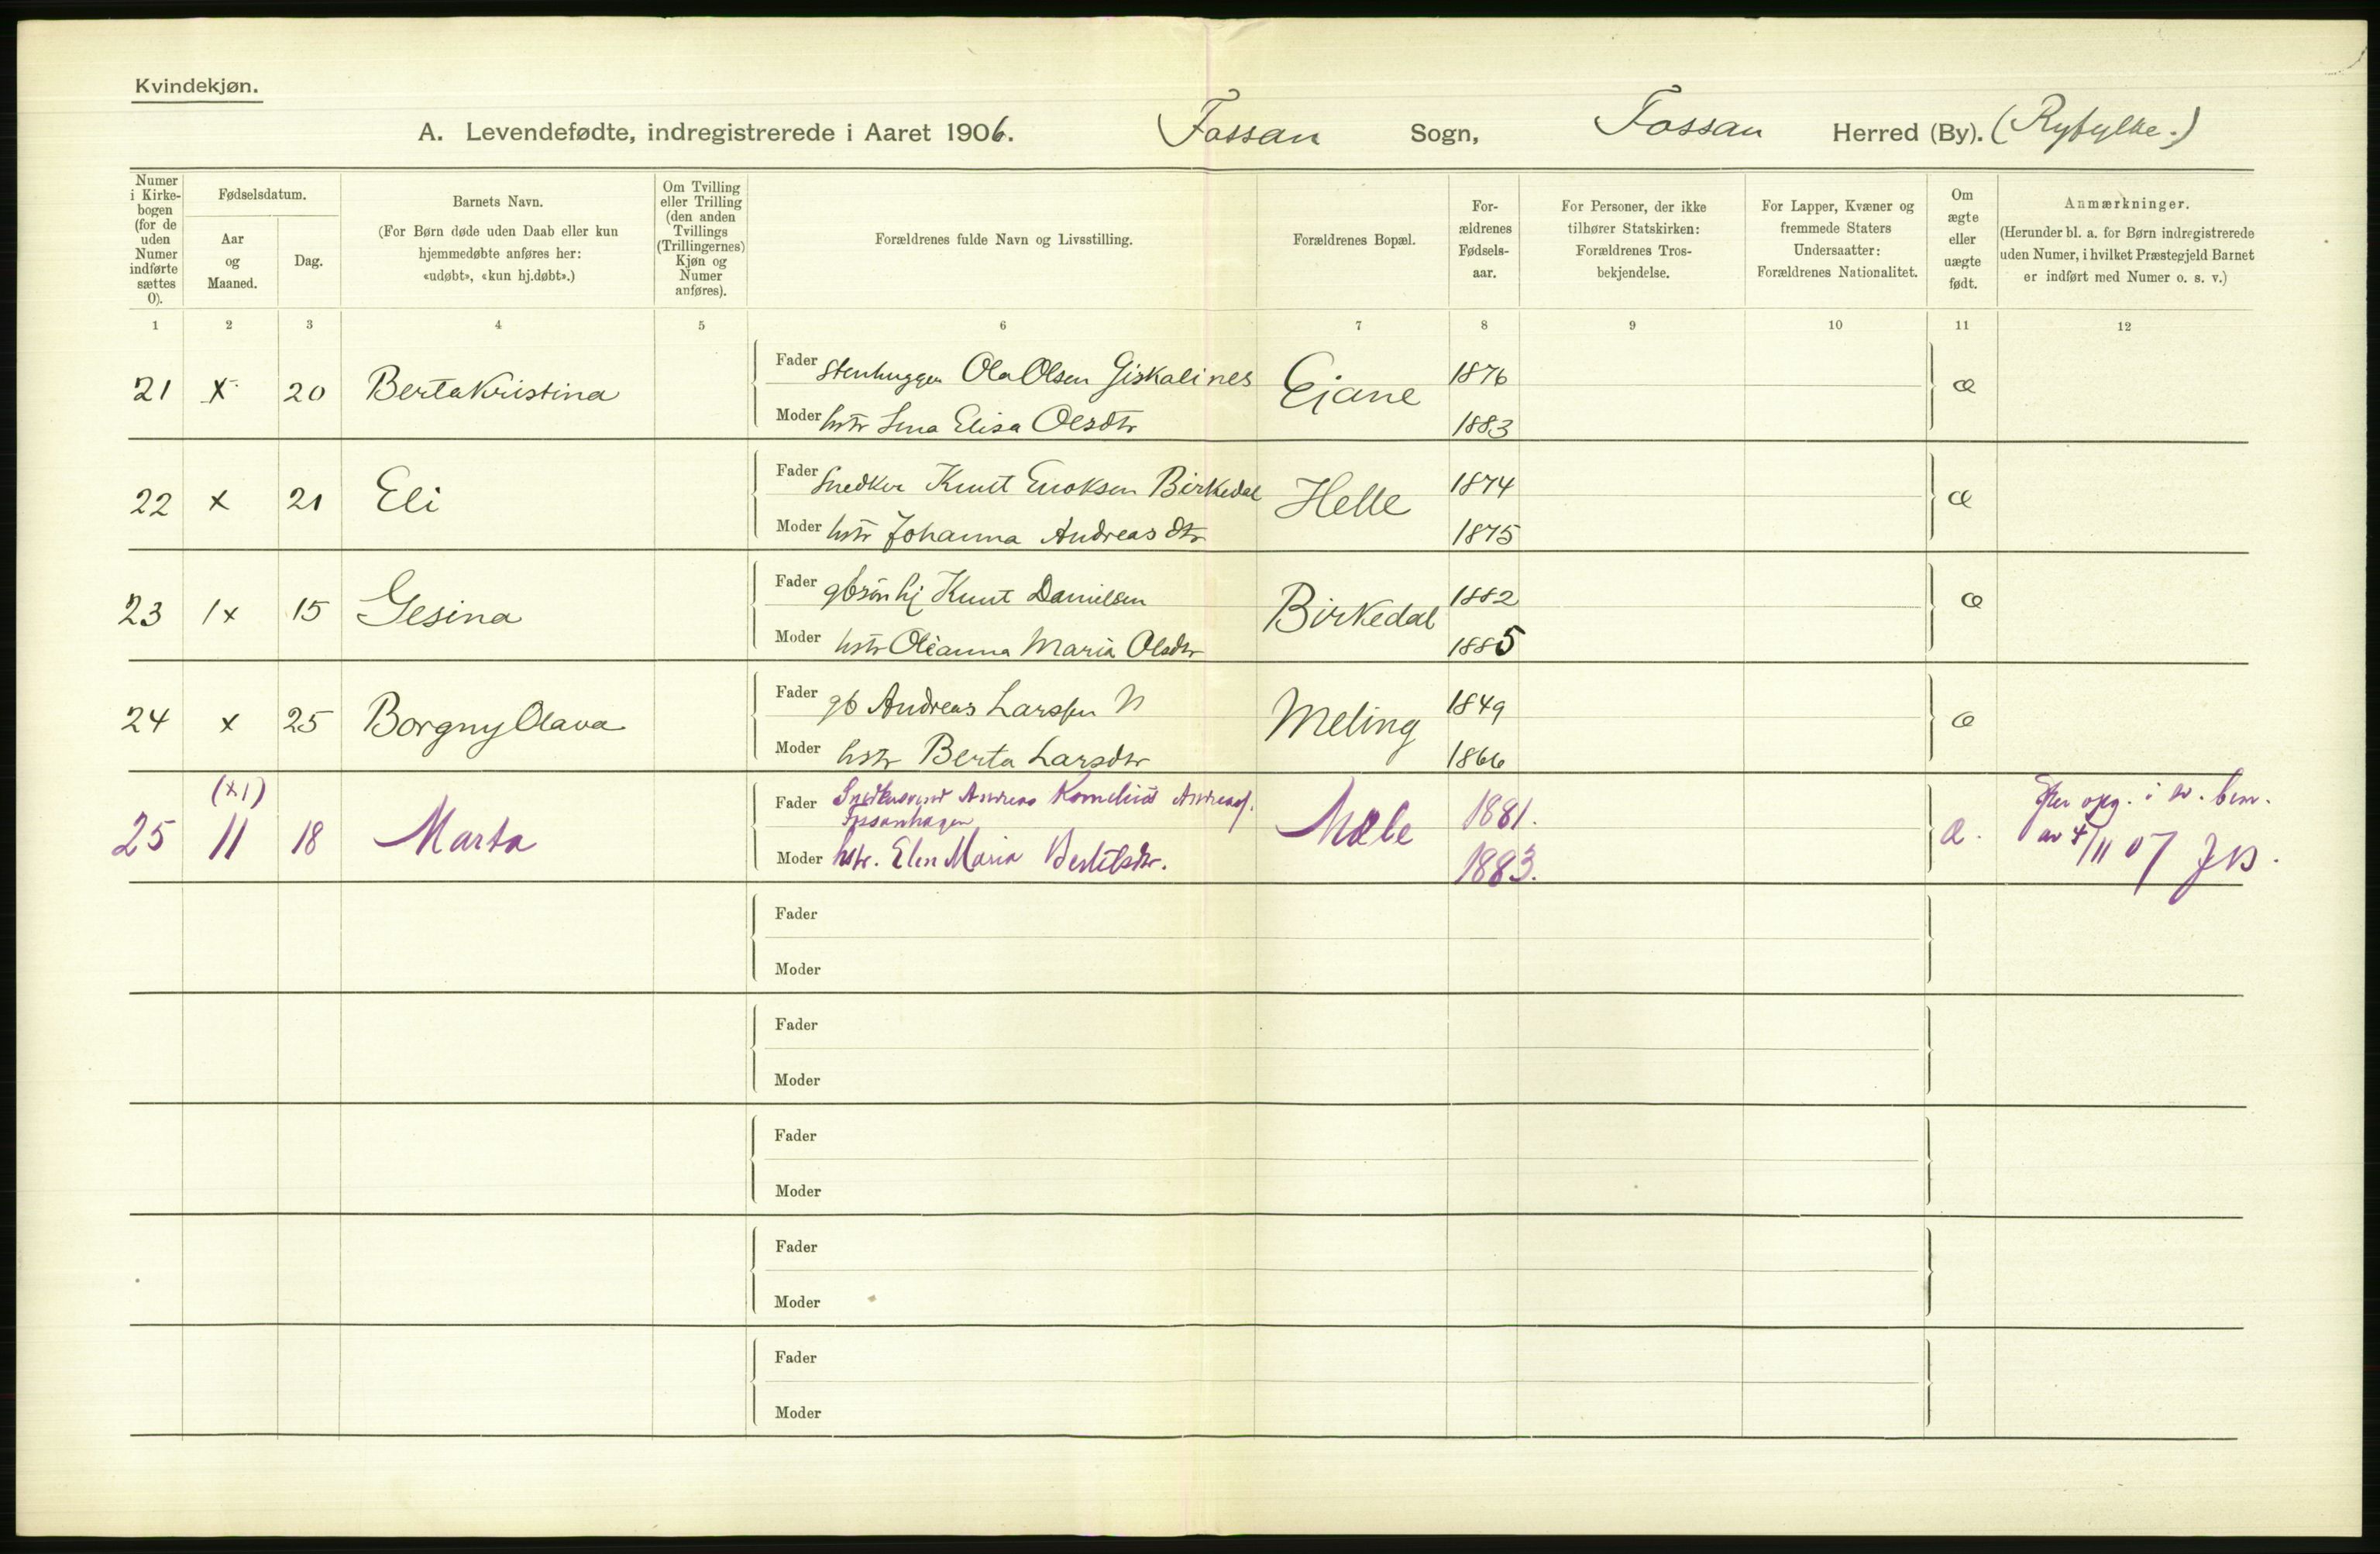 Kvindekjøn.
A. Levendefødte, indregistrerede i Aaret 1906. Fossan Sogn, Fossan Herred (By). (Ryfylke.)
Numer i Kirke-bogen (for de uden Numer indførte sættes 0).
Fødselsdatum.
Aar og Maaned.
Dag.
Barnets Navn.
(For Børn døde uden Daab eller kun
hjemmedøbte anføres her:
«udøbt», «kun hj.døbt».)
Om Tvilling eller Trilling (den anden Tvillings (Trillingernes) Kjøn og Numer anføres).
Forældrenes fulde Navn og Livsstilling.
Forældrenes Bopæl.
For-ældrenes Fødsels-aar.
For Personer, der ikke
tilhører Statskirken:
Forældrenes Tros-
bekjendelse.
For Lapper, Kvæner og
fremmede Staters
Undersaatter:
Forældrenes Nationalitet.
Om ægte eller uægte født.
Anmærkninger.
(Herunder bl. a. for Børn indregistrerede
uden Numer, i hvilket Præstegjeld Barnet
er indført med Numer o. s. v.)
1 2 3 4 5 6 7 8 9 10 11 12
21 x 20 Berta Kristina Fader Stenhugger Ola Olsen Giskalines Eiane 1876 æ
Moder hstr Lina Elisa Olsdtr 1883
22 x 21 Eli Fader Snedker Knut Enoksen Birkedal Helle 1874 æ
Moder hstr Johanna Andreasdtr 1875
23 1x 15 Gesina Fader gbsøn hj Knut Danielsen Birkedal 1882 æ
Moder hstr Olianna Maria Olsdtr 1885
24 x 25 Borgny Olava Fader gb Andreas Larssen N Meling 1849 æ
Moder hstr Berta Larsdtr 1866
(x1)
25 11 18 Marta Fader Andreas Kornelius Andreas. Mæle 1881. æ.
Fossanhagen
Moder hstr. Elen Maria Bertilsdtr. 1883.
opg. i
av 4/11 07
Fader
Moder
Fader
Moder
Fader
Moder
Fader
Moder
Fader
Moder